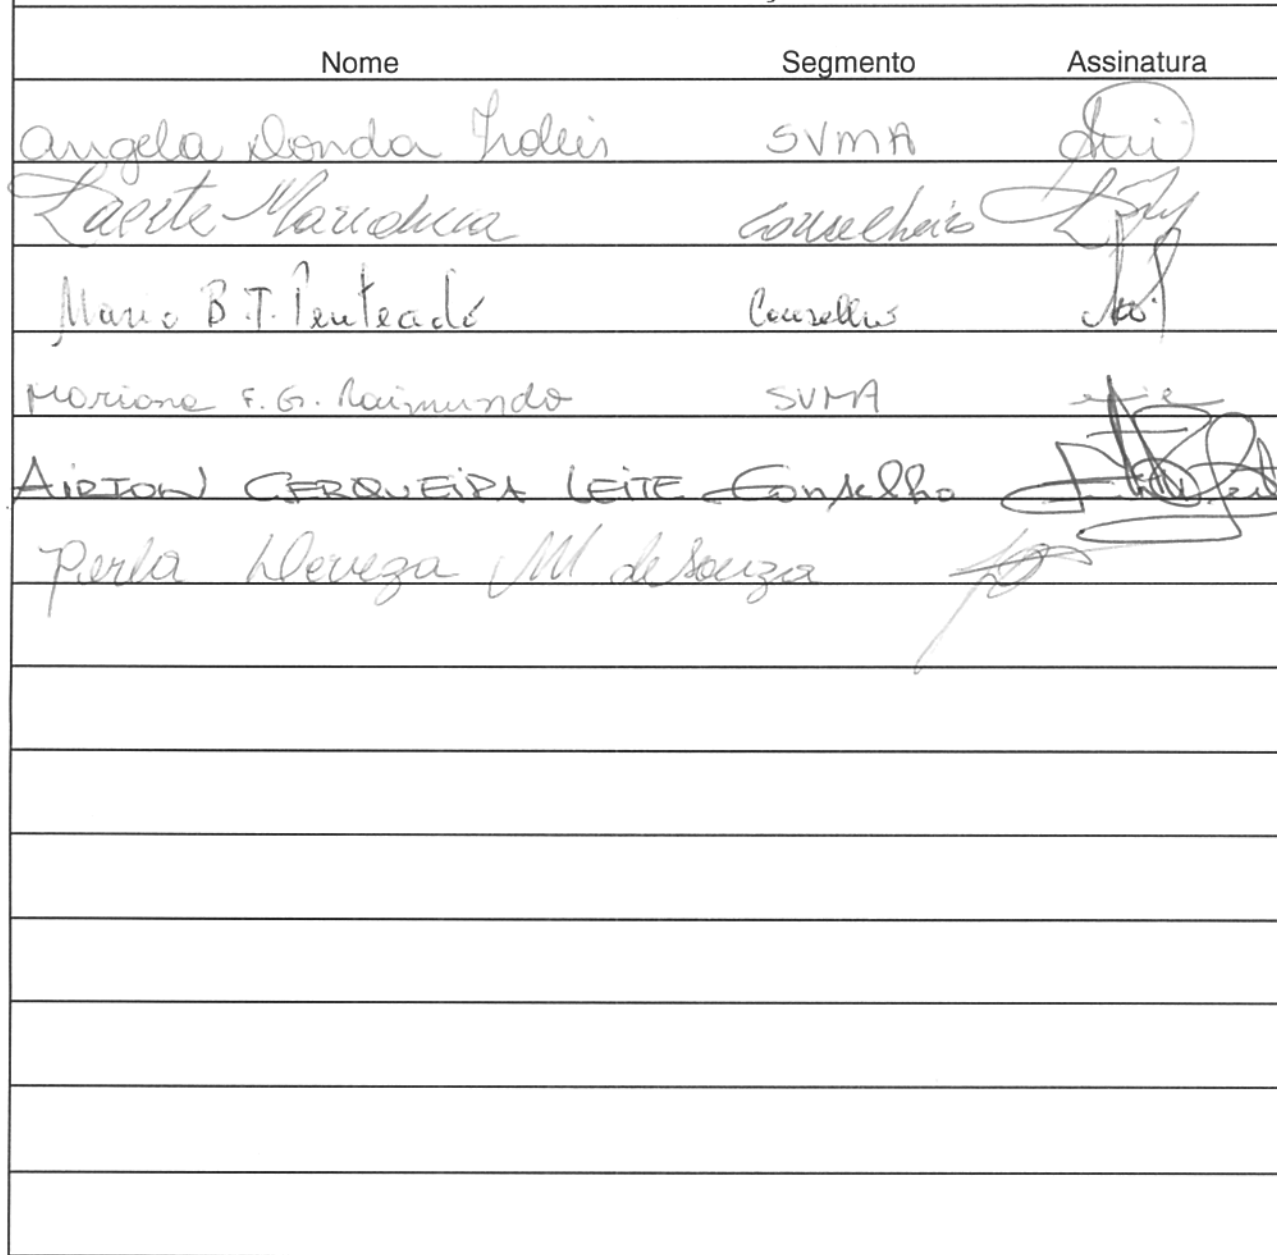 Nome Segmento Assinatura
Angela Donda SVMA
Laerte Conselheiro
Mario B. T. Penteado Conselho
Mariana F. G. Raimundo SVMA
AIRTON CERQUEIRA LEITE Conselho
Perla Deveza M de Souza